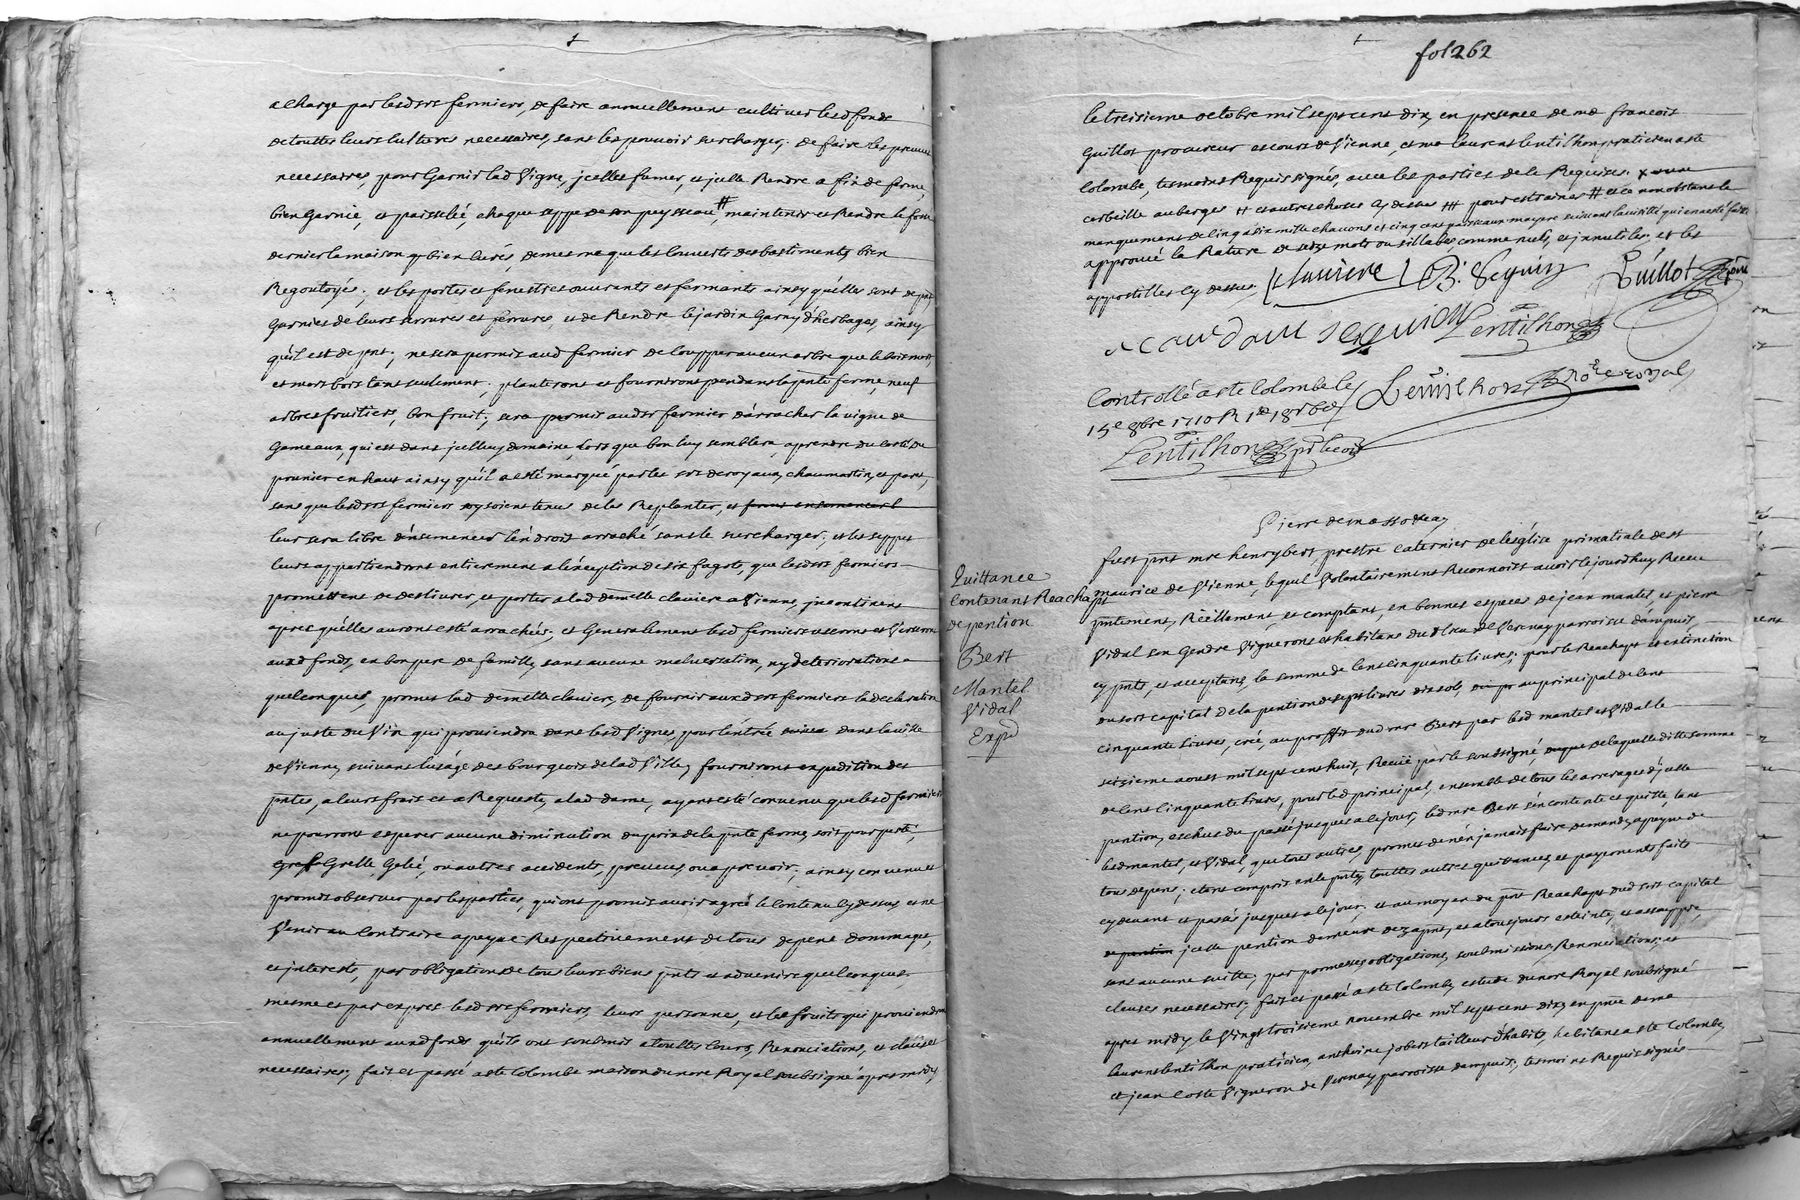 a charge par lesd srs fermiers, de faire annuellement cultiver lesd fonds
de touttes leurs cultures necessaires, sans les pouvoir surcharger; de faire les preuves
necessaires, pour Garnir lad Vigne, jcelles fumer, et jcelle Rendre a fin de ferme,
bien Garnie, et paisselée, chaque seppe de son peysseau # maintenir et Rendre le fons
dernier la maison q bien curés, demesme que les couverts des bastiments, bien
Regoutoyés; et les portes et fenestres ouvrants et fermants ainsy qu'elles sont de pnt
Garnies de leurs serrures et ferrures, et de Rendre le jardin Garny d'herbages, ainsy
qu'il est de pnt; ne sera permis aud fermier de coupper aucun arbre que le bois mort,
et mort bois tant seulement; planteront et fourniront pendant la pnte ferme, neuf
arbres fruitiers, bon fruit; sera permis aud sr fermier d'arracher la vigne de
Gameaux, qui est dans jcelluy domaine, Lors que bon luy semblera, a prendre du costé du
prunier en haut ainsy qu'il a esté marqué par les srs de royaux, chaumartin, et part,
sans que lesd srs fermiers soyent tenus de les Replanter, et
leur sera libre d'ensemencer l'endroit arraché sans le surcharger; et les seppes
leurs appartiendront entierement a l'exception de six fagots, que lesd srs fermiers
promettent de deslivrer, et porter a lad demlle claviere a Vienne, jncontinent
apres qu'elles auront esté arrachées; et Generallement lesd fermiers useront et Verseront
auxd fonds, en bon pere de famille, sans aucune malversation, ny deteriorations
quelconques, promet lad demlle claviere, de fournir auxd srs fermiers la declaration
au juste du Vin qui proviendra dans lesd Vignes, pour l'entrée dans la ville
de Vienne, suivant l'usage des bourgeois de lad Ville; fourniront expedition des
pntes, a leurs frais et a Requeste, a lad dame, ayant esté convenu que lesd fermiers
ne pourront esperer aucune diminution du prix de la pnte ferme, soit pour peste,
Gresle, Gelée, ou autres accidents, preveus, ou a prevoir; ainsy convenu et
promis observer par les parties, qui ont promis avoir agréé le Contenu Cy dessus, et ne
Venir au Contraire a peyne Respectivement de tous depens dommages,
et jnterests, par obligations de tous leurs biens pnts et advenir quelconques,
mesme et par expres lesd srs fermiers, leurs personnes, et les fruits qui proviendront
annuellement auxd fonds qu'ils ont soubmis a touttes Cours, Renonciations, et clauses
necessaires; fait et passé a ste Colombe maison du nore Royal soubsigné apres midy
fol 262
le treisieme octobre mil sept cent dix, en presence de me francois
Guillot procureur es cours de Vienne, et me laurens lentilhon, praticien a ste
Colombe, tesmoins Requis signés, avec les parties de le Requises. x
corbeille au berger # et autres choses cy dessus ## pour estraines # et ce nonobstant le
manquement de cinq a six mille chavons et cinq cent paisseaux mayre suivant la visitte qui en a esté faitte
approuvé la Rature de seize mots ou sillabes comme nuls, et jnnutiles, et les
appostilles cy dessus. Claviere B. Seguin Guillot
Lentilhon
Controllé a ste Colombe le
15e 8bre 1710 R
Lentilhon nore royal
Lentilhon
Pierre de massotteaz
fust pnt mre henry bert, prestre caternier de l'église primatiale de st
maurice de Vienne, lequel Volontairement Reconnoist avoir lejourdhuy Receu
pntement, Réellement et comptant, en bonnes especes de jean mantel, et pierre
Vidal son Gendre Vignerons et habitans du de Verenay parroisse d'ampuis,
cy pnts, et acceptans, la somme de cent cinquante livres; pour le Reachapt et extinction
du sort capital de la pention de sept livres dix sols, au principal de cent
cinquante Livres, créé, au proffit dud mre Bert par lesd mantel et Vidal le
seizieme aoust mil sept cent huit, Receüe par le soussigné, de laquelle ditte somme
de cent cinquante livres, pour led principal, ensemble de tous les arrerages d'jcelle
pention, escheus du passé jusques a ce jour, led mre Bert s'en contente et quitte, tant
lesd mantel, et Vidal, que tous autres, promet de n'en jamais faire demande, a peyne de
tous depens; et sont compris en la pnte, touttes autres quittances, et payements faits
cy devant et passés jusques a ce jour; et au moyen du pnt Reachapt dud sort capital
jcelle pention demeure dez a pnt, et a tousjours esteinte, et assouppie,
sans aucune suitte; par promesses obligations, soubmissions, Renonciations, et
clauses necessaires; fait et passé a ste Colombe, estude du nore Royal soubsigné
apres midy le Vingt troisieme novembre mil sept cent dix, en pnce de me
laurens lentilhon praticien, anthoine jobert tailleur d'habits, habitans a ste Colombe,
et jean Coste Vigneron de Verenay parroisse dampuis, tesmoins Requis signés
Quittance
Contenant Reachapt
de pention
Bert
Mantel
Vidal
Expd